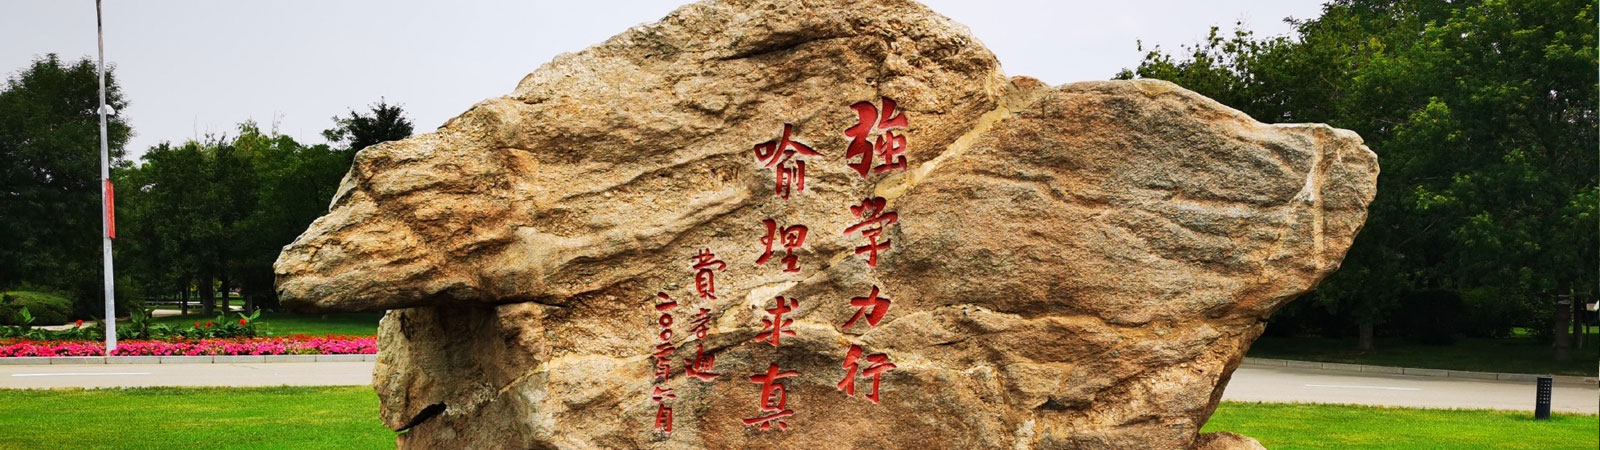 強學力行
喻理求真
費孝通
二〇〇二年六月